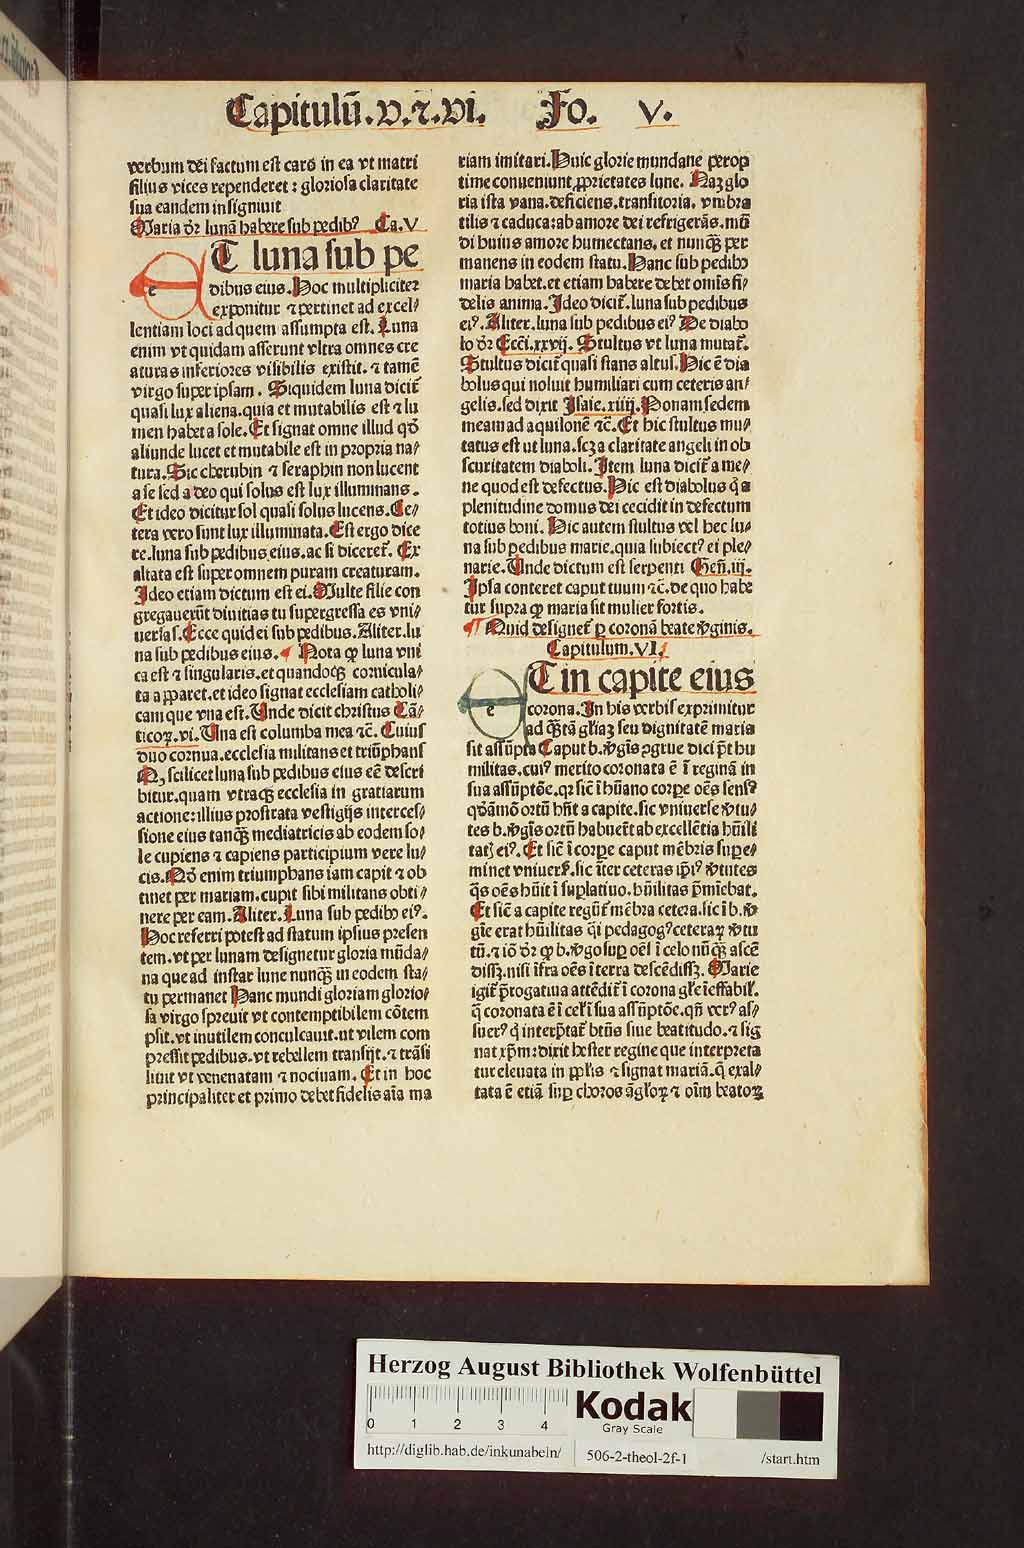 Capitulū.v.⁊.vi. Fo. V.
verbum dei factum est caro in ea vt matri
filius vices rependeret: gloriosa claritate
sua eandem insigniuit
Maria dr̄ lunā habere sub pedibꝰ Ca.V
ET luna sub pe
dibus eius. Hoc multipliciter
exponitur ⁊ pertinet ad excel/
lentiam loci ad quem assumpta est. Luna
enim vt quidam asserunt vltra omnes cre
aturas inferiores visibilis existit. ⁊ tamē
virgo super ipsam. Siquidem luna dicit̄
quasi lux aliena. quia et mutabilis est ⁊ lu
men habet a sole. Et signat omne illud qd̄
aliunde lucet et mutabile est in propria na/
tura. Sic cherubin ⁊ seraphin non lucent
a se sed a deo qui solus est lux illuminans.
Et ideo dicitur sol quasi solus lucens. Ce/
tera vero sunt lux illuminata. Est ergo dice
re. luna sub pedibus eius. ac si diceret̄. Ex
altata est super omnem puram creaturam.
Ideo etiam dictum est ei. Multe filie con
gregauerūt diuitias tu supergressa es vni/
uersas. Ecce quid ei sub pedibus. Aliter. lu
na sub pedibus eius. ¶ Nota ꝙ luna vni
ca est ⁊ singularis. et quandoqꝫ cornicula/
ta apparet. et ideo signat ecclesiam catholi/
cam que vna est. Unde dicit christus Cā/
ticoꝝ.vi. Una est columba mea ⁊c̄. Cuius
duo cornua. ecclesia militans et triūphans
scilicet luna sub pedibus eius eē descri
bitur. quam vtraqꝫ ecclesia in gratiarum
actione: illius prostrata vestigijs interces/
sione eius tanqꝫ mediatricis ab eodem so/
le cupiens ⁊ capiens participium vere lu/
cis. Qd̄ enim triumphans iam capit ⁊ ob
tinet per mariam. cupit sibi militans obti/
nere per eam. Aliter. Luna sub pedibꝰ eiꝰ.
Hoc referri potest ad statum ipsius presen
tem. vt per lunam designetur gloria mūda/
na que ad instar lune nunqꝫ in eodem sta/
tu permanet Hanc mundi gloriam glorio/
sa virgo spreuit vt contemptibilem cōtem
psit. vt inutilem conculcauit. vt vilem com
pressit pedibus. vt rebellem transijt. ⁊ trāsi
liuit vt venenatam ⁊ nociuam. Et in hoc
principaliter et primo debet fidelis aīa ma
riam imitari. Huic glorie mundane perop
time conueniunt ꝓprietates lune. Naꝫ glo
ria ista vana. deficiens. transitoria. vmbra
tilis ⁊ caduca: ab amore dei refrigerās. mū
di huius amore humectans. et nunqꝫ per
manens in eodem statu. Hanc sub pedibꝰ
maria habet. et etiam habere debet omīs fi/
delis anima. Ideo dicit̄. luna sub pedibus
eiꝰ. Aliter. luna sub pedibus eiꝰ De diabo
lo dr̄ Ecci.xxvij. Stultus vt luna mutat̄.
Stultus dicit̄ quasi stans altus. Hic ē dia
bolus qui noluit humiliari cum ceteris an/
gelis. sed dixit Isaie.xiiij. Ponam sedem
meam ad aquilonē ⁊c̄. Et hic stultus mu/
tatus est ut luna. scꝫ a claritate angeli in ob
scuritatem diaboli. Item luna dicit̄ a me/
ne quod est defectus. Hic est diabolus q̄ a
plenitudine domus dei cecidit in defectum
totius boni. Hic autem stultus vel hec lu/
na sub pedibus marie. quia subiectꝰ ei ple/
narie. Unde dictum est serpenti Gen̄.iij.
Ipsa conteret caput tuum ⁊c̄. de quo habe
tur supra ꝙ maria sit mulier fortis.
¶ Quid designet̄ ꝑ coronā beate v̄ginis.
Capitulum.VI.
ET in capite eius
corona. In his verbis exprimitur
ad qꝫtā gl̄iaꝫ seu dignitatē maria
sit assūpta Caput b. v̄gīs ꝓgrue dici pt̄ hu
militas. cuiꝰ merito coronata ē ī reginā in
sua assūptōe. qꝛ sic̄ ī hūano corpe oēs sensꝰ
qd̄āmō ortū hn̄t a capite. sic vniuerse v̄tu/
tes b. v̄gīs ortū habuer̄t ab excellētia hūili
tatꝭ eiꝰ. Et sic̄ ī corpe caput mēbris supe/
minet vniuers̄. sic īter ceteras ip̄iꝰ v̄tutes
q̄s oēs hūit ī suplatiuo. hūilitas p̄mīebat.
Et sic̄ a capite regūt̄ mēbra cetera. sic ī b. v̄
gīe erat hūilitas q̄i pedagogꝰ ceteraꝝ v̄tu
tū. ⁊ iō dr̄ ꝙ b. v̄go suꝑ oēs ī celo nūqꝫ ascē
dissꝫ. nisi īfra oēs ī terra descēdissꝫ. Marie
igit̄ p̄rogatiua attēdit̄ ī corona gl̄e īeffabil̄.
q̄ coronata ē ī cel̄i sua assūptōe. qn̄ verꝰ as/
suerꝰ q̄ interp̄tat̄ btn̄s siue beatitudo. ⁊ sig
nat xp̄m: dixit hester regine que interpreta
tur eleuata in pp̄lis ⁊ signat mariā. q̄ exal/
tata ē etiā suꝑ choros āgloꝝ ⁊ oīm beatoꝝ
Herzog August Bibliothek Wolfenbüttel
0 1 2 3 4
Kodak
Gray Scale
http://diglib.hab.de/inkunabeln/ 506-2-theol-2f-1 /start.htm